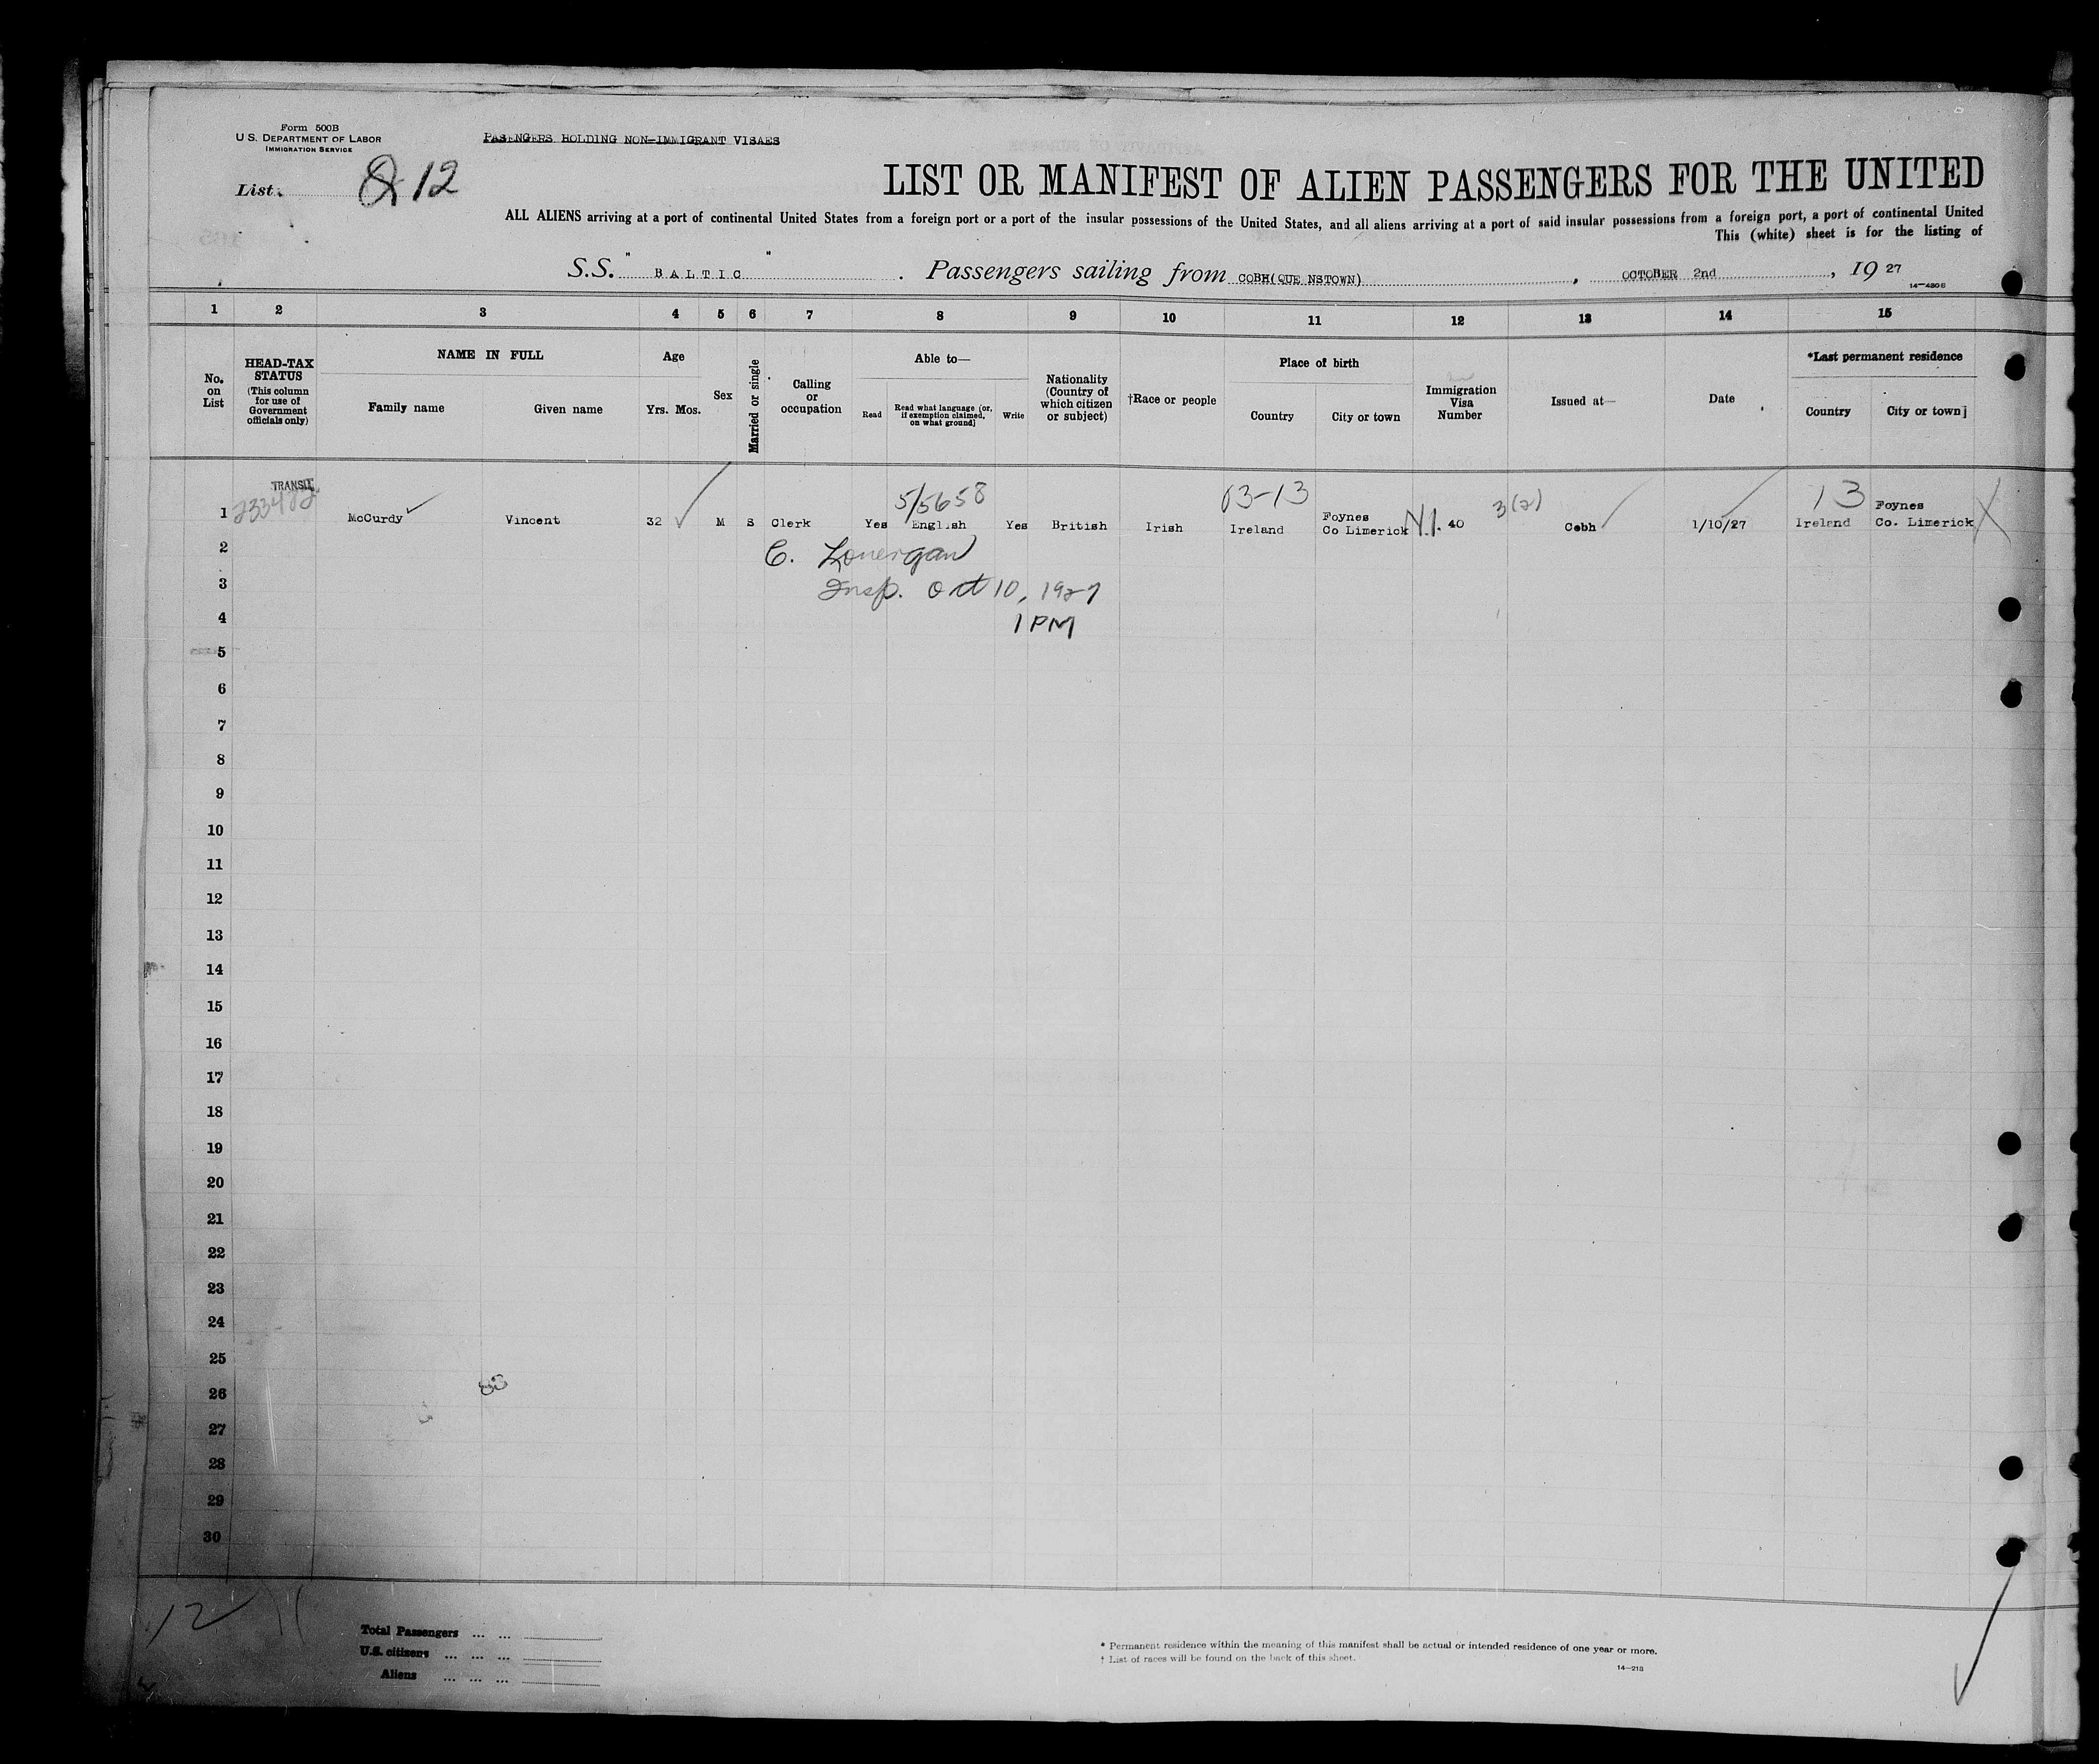 Form 500B
U. S. DEPARTMENT OF LABOR
IMMIGRATION SERVICE
PASENGERS HOLDING NON-IMMIGRANT VISAES
List 12
LIST OR MANIFEST OF ALIEN PASSENGERS FOR THE UNITED
ALL ALIENS arriving at a port of continental United States from a foreign port or a port of the insular possessions of the United States, and all aliens arriving at a port of said insular possessions from a foreign port, a port of continental United
This (white) sheet is for the listing of
S.S. " BALTIC " . Passengers sailing from COBH(QUE NSTOWN) , OCTOBER 2nd , 19 27
14-4306
1 2 3 4 5 6 7 8 9 10 11 12 13 14 15
No. on List
HEAD-TAX STATUS (This column for use of Government officials only)
NAME IN FULL
Family name Given name
Age
Yrs. Mos.
Sex
Married or single
Calling or occupation
Able to—
Read Read what language (or, if exemption claimed, on what ground) Write
Nationality (Country of which citizen or subject)
†Race or people
Place of birth
Country City or town
Immigration Visa Number
Issued at—
Date
*Last permanent residence
Country City or town
TRANSIT
233482 5/5658 03-13 3(2) 13
1 McCurdy Vincent 32 M S Clerk Yes English Yes British Irish Ireland Foynes Co Limerick 40 Cobh 1/10/27 Ireland Foynes Co. Limerick
2 C. Lonergan
3 Insp. Oct 10, 1927
4 1 PM
5
6
7
8
9
10
11
12
13
14
15
16
17
18
19
20
21
22
23
24
25
26
27
28
29
30
12
Total Passengers ... ...
U.S. citizens ... ... ...
Aliens ... ... ...
* Permanent residence within the meaning of this manifest shall be actual or intended residence of one year or more.
† List of races will be found on the back of this sheet.
14-213